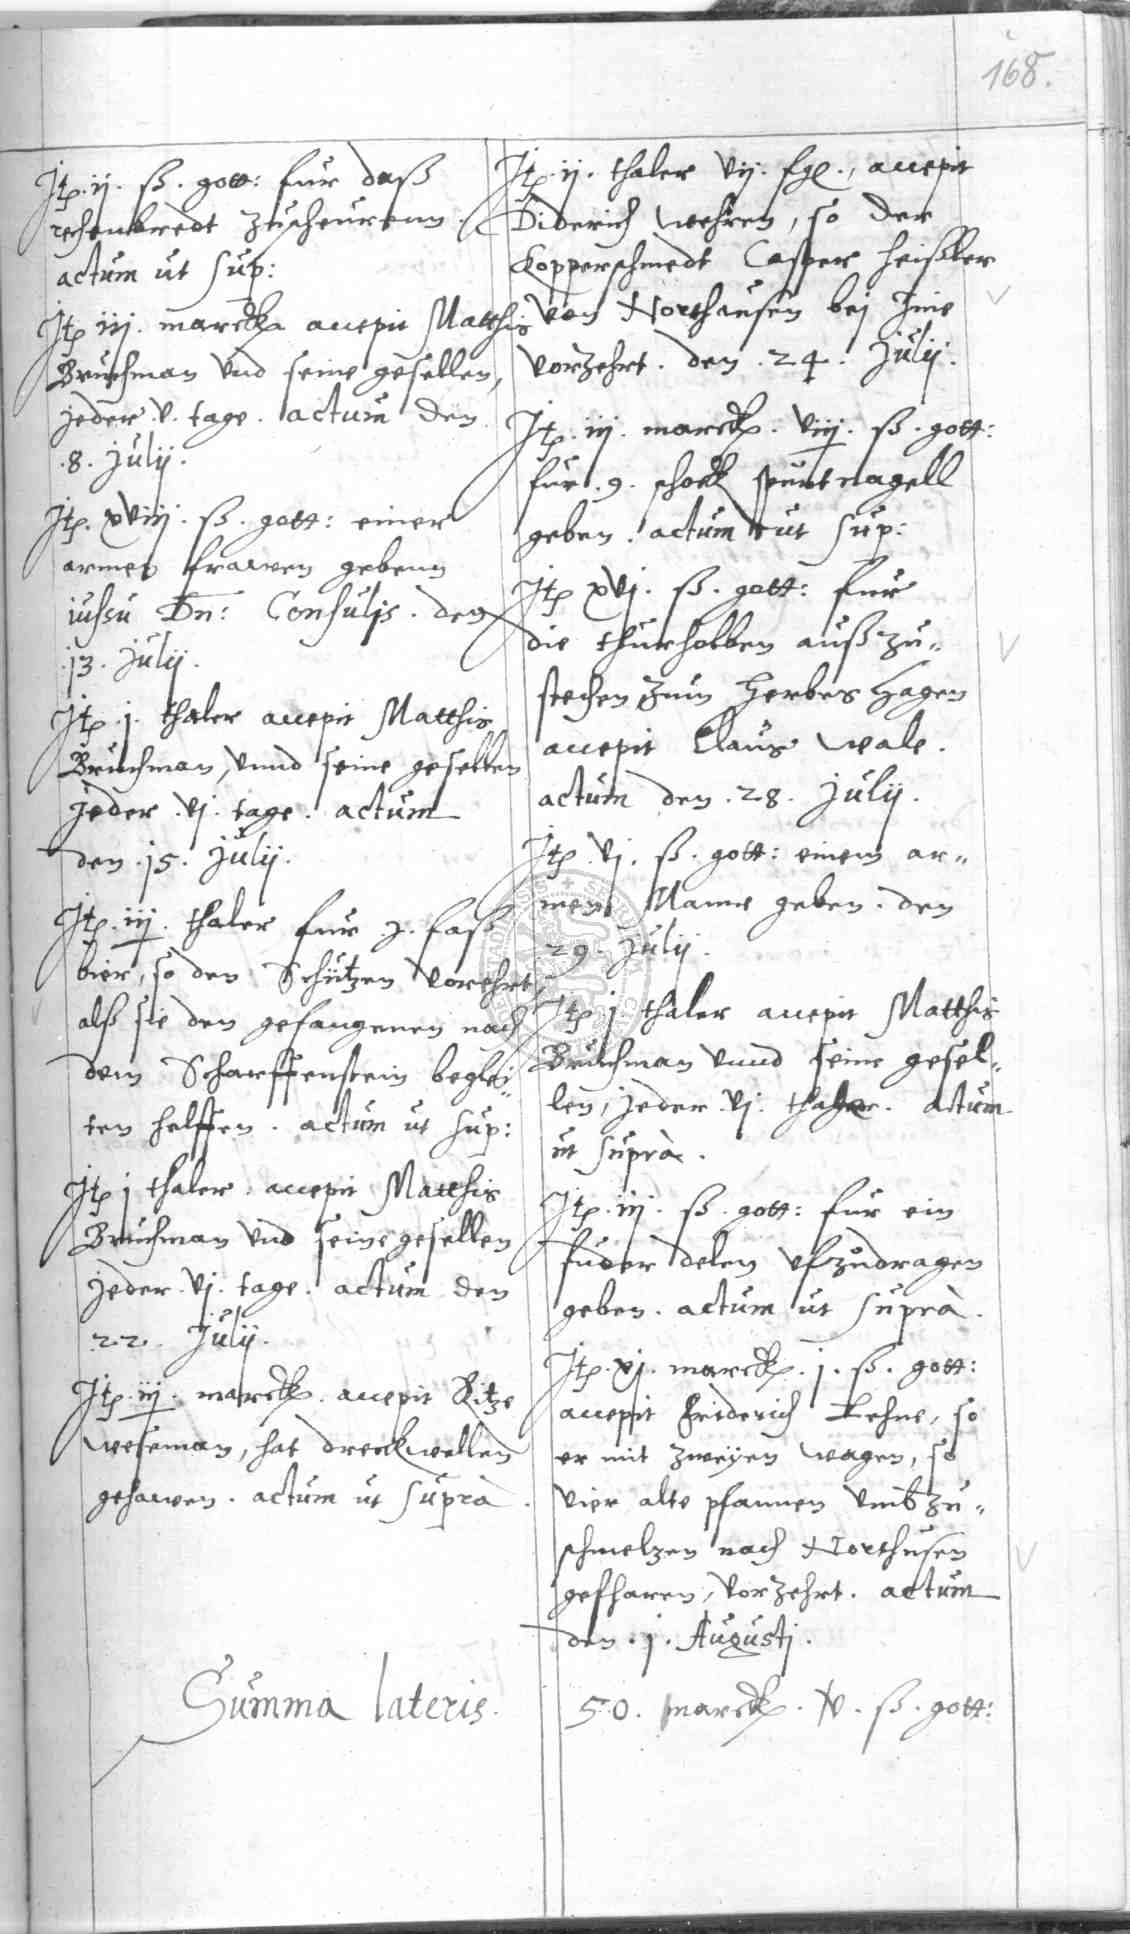 168.
Jtp. ij. ß. gott: fur daß
rechenbredt zuscheurenn.
actum ut sup:
Jtp iij. marckh accepit Matthis
Bruchman vnd seine gesellen,
jeder v. tage. actum den
.8. julij.
Jtp. xviij. ß. gott: einer
armen frawen gebenn
iussu Dn: Consulis. den
.13. julij.
Jtp. j. thaler accepit Matthis
Bruchman, vnnd seine gesellen
jeder .vj. tage. actum
den .15. julij.
Jtp. iij. thaler fur .j. faß
bier, so den Schützen vorehrt,
alß sie den gefangenen nach
dem Scharffenstein beglei„
ten helffen. actum ut sup:
Jtp j thaler. accepit Matthis
Bruchman vnd seine gesellen
jeder .vj. tage. actum den
22. Julij.
Jtp. iij. marckh. accepit Ritze
Weseman, hat dreckwellen
gehawen. actum ut suprà.
Summa lateris.
Jtp. ij. thaler vij. sgl., accepit
Diderich Wehren, so der
Kopperschmedt Casper Heißker
von Northausen bej Jme
vorzehrt. den .24. Julij.
Jtp. iij. marckh. viij. ß. gott:
fur .9. schock spuntnagell
geben. actum ut sup:
Jtp xvj. ß. gott: fur
die thurholben außzu„
stechen zum Herbes Hagen
accepit Claus Wale.
actum den .28. julij.
Jtp. vj. ß. gott: einem ar„
men Manne geben. den
29. julij.
Jtp. j. thaler accepit Matthis
Bruchman vnnd seine gesel„
len, jeder .vj. thaler. actum
ut suprà.
Jtp. iij. ß. gott: fur ein
fuder delen vfzudragen
geben. actum ut suprà.
Jtp. xj. marckh. j. ß. gott:
accepit Friderich Lehne, so
er mit zweyen wagen, so
vier alte pfannen vmbzu„
schmelzen nach Northusen
gefharen, vorzehrt. actum
den .j. Augustj.
50. marckh. v. ß. gott: